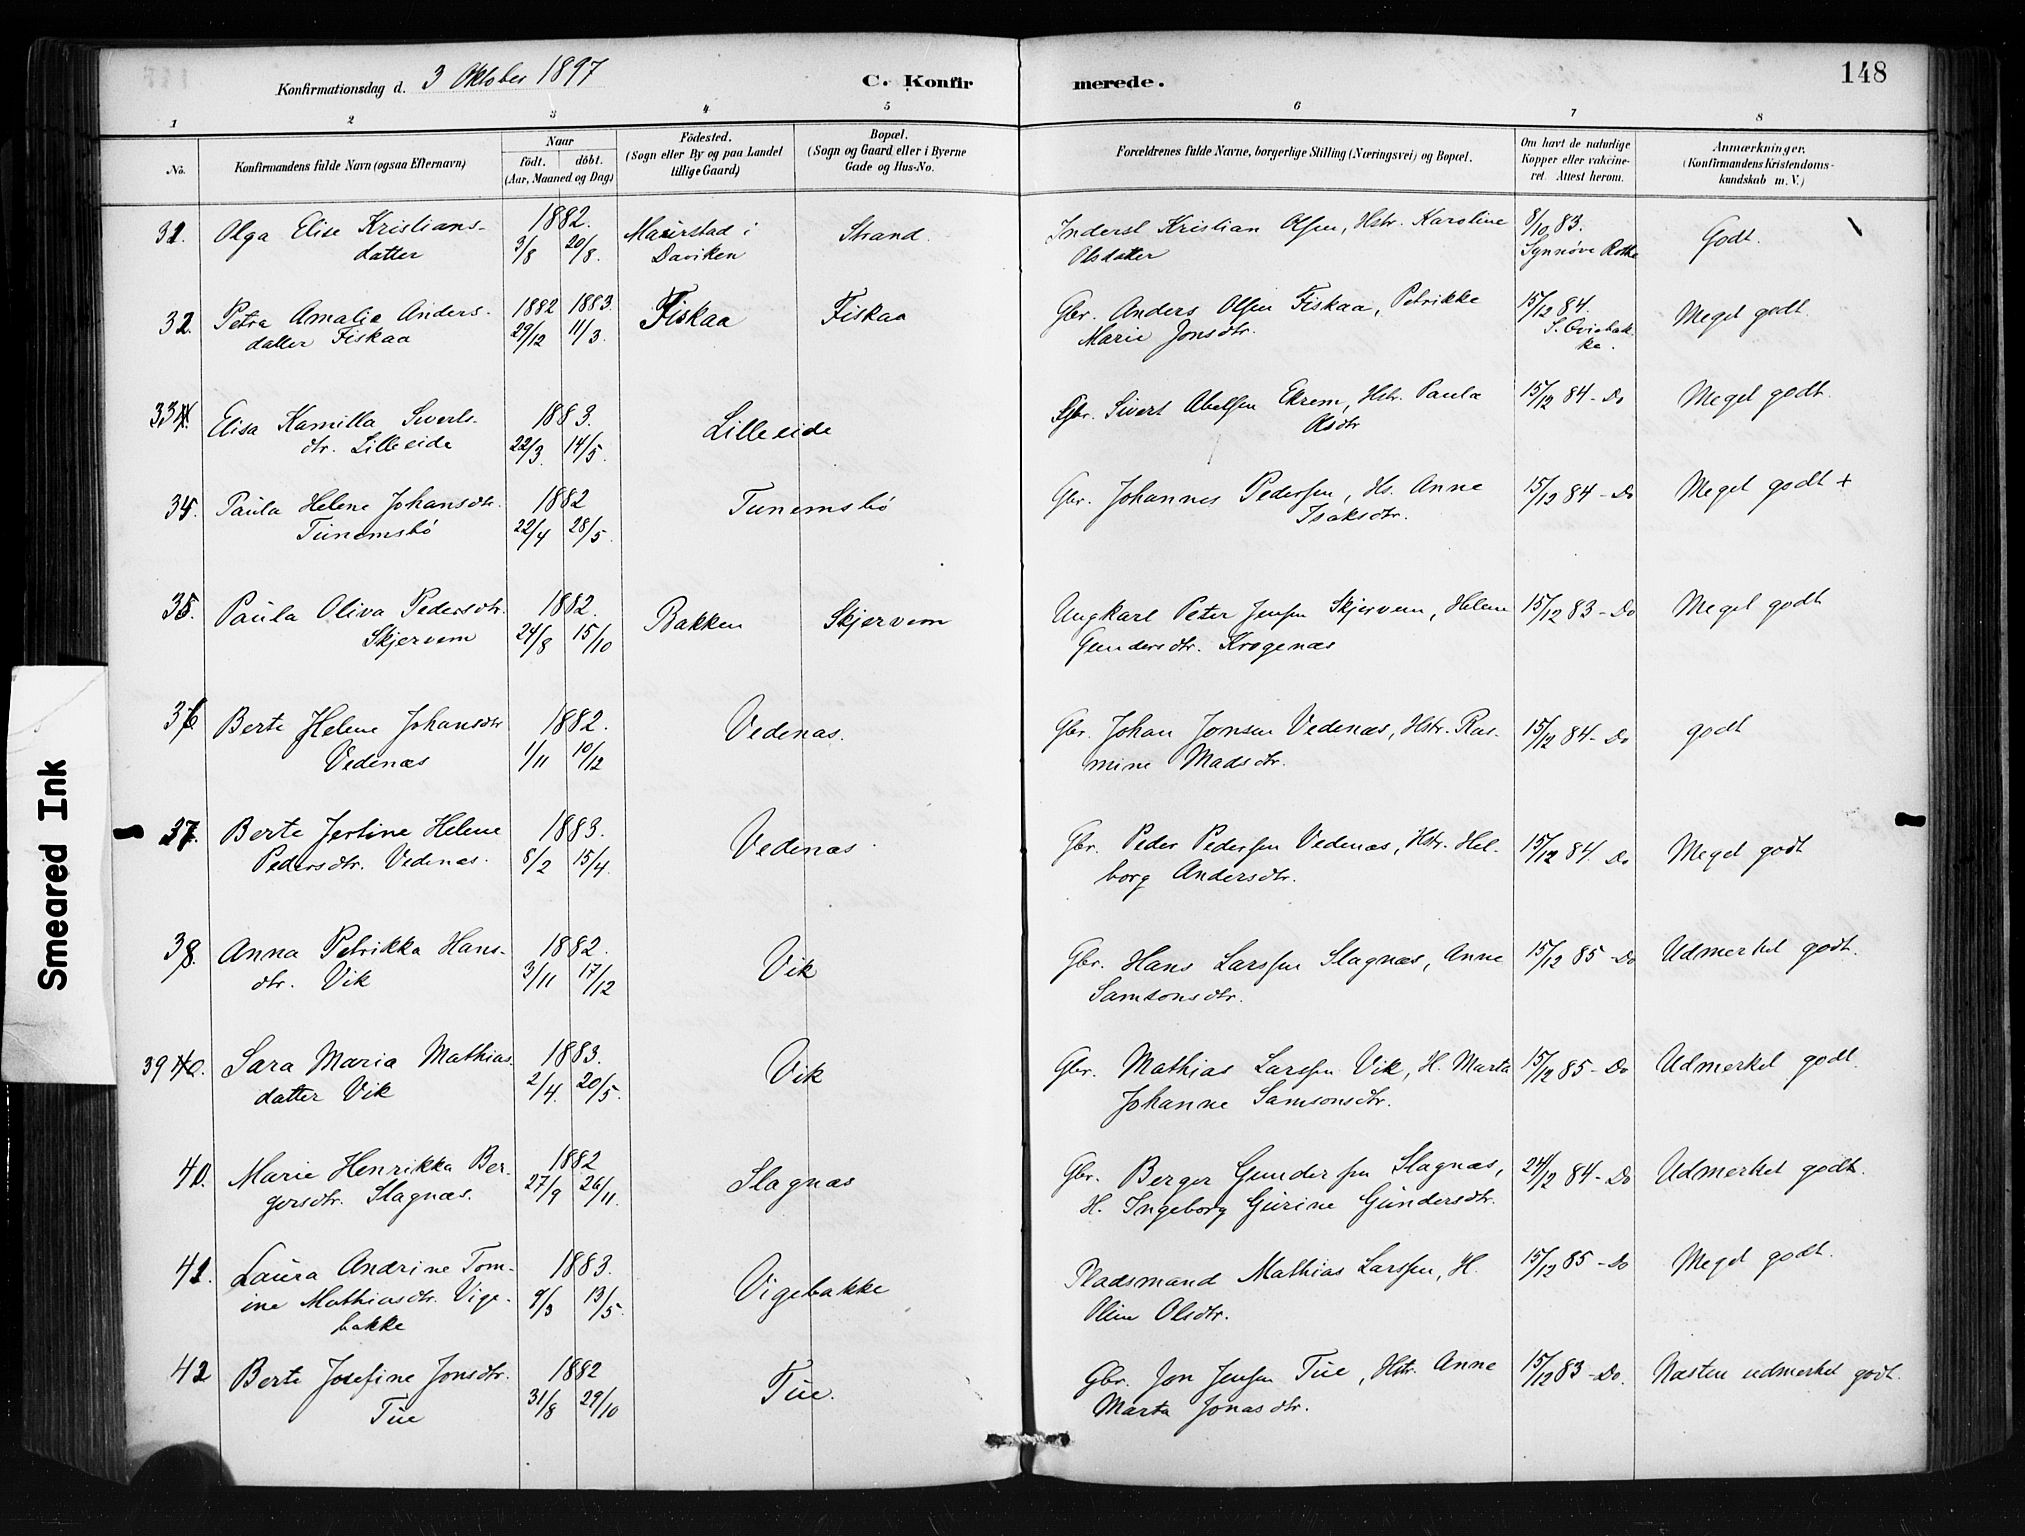 148
Konfirmationsdag d. 3 Oktober 1897
C. Konfirmerede.
1 2 3 4 5 6 7 8
No.
Konfirmandens fulde Navn (ogsaa Efternavn)
Naar
født. døbt.
(Aar, Maaned og Dag)
Födested.
(Sogn eller By og paa Landet
tillige Gaard)
Bopæl.
(Sogn og Gaard eller i Byerne
Gade og Hus-No.
Forældrenes fulde Navne, borgerlige Stilling (Næringsvei) og Bopæl.
Om havt de naturlige
Kopper eller vakcine-
ret. Attest herom.
Anmærkninger,
(Konfirmandens Kristendoms-
kundskab m. V.)
31. Olga Elise Kristians- 1882. Maurstad i Strand. Inderst Kristian Olsen, Hstr. Karoline 8/10 83. Godt.
datter 3/8 20/8. Daviken Olsdatter Synnøve Rotke
32. Petra Amalie Anders- 1882 1883. Fiskaa Fiskaa Gbr. Anders Olsen Fiskaa, Petrikke 15/12 84. Meget godt.
datter Fiskaa 29/12 11/3. Marie Jonsdtr.
33. Elisa Kamilla Siverts- 1883. Lilleeide Gbr. Sivert Abelsen Ekrem, Hstr. Paula 15/12 84 - Do Meget godt.
dtr. Lilleeide 22/3. 14/5. Olsdtr
34. Paula Helene Johansdtr. 1882 Tunemsbö Gbr. Johannes Pedersen, Hs. Anne 15/12 84 - Do Meget godt +
Tunemsbö 22/4 28/5. Isaksdtr.
35. Paula Oliva Pedersdtr. 1882. Bakken Skjervem Ungkarl Peter Jensen Skjervem, Helene 15/12 83 - Do Meget godt
Skjervem 24/8 15/10 Gundersdtr. Krogenæs
36 Berte Helene Johansdtr 1882. Vedenæs. Gbr. Johan Jonsen Vedenæs, Hstr. Ras- 15/12 84 - Do godt
Vedenæs 1/11 10/12 mine Madsdtr.
37. Berte Jertine Helene 1883. Vedenæs. Gbr. Peder Pedersen Vedenæs, Hstr. Hel- 15/12 84. Do Meget godt
Pedersdtr. Vedenæs. 8/2 15/4. borg Andersdtr.
38. Anna Petrikka Hans- 1882. Vik Gbr. Hans Larssen Slagnæs, Anne 15/12 85 - Do Udmerket godt.
dtr. Vik 3/11 17/12 Samsonsdtr.
39 40. Sara Maria Mathias 1883. Vik Gbr. Mathias Larssen Vik, H. Marta 15/12 85 - Do Udmerket godt.
datter Vik 2/4. 20/5. Johanne Samsonsdtr.
40. Marie Henrikka Ber- 1882 Slagnæs Gbr. Berger Gundersen Slagnæs, 24/12 84 - Do Udmerket godt.
gersdtr. Slagnæs. 27/9 26/11. H. Ingeborg Gurine Gundersdtr.
41. Laura Andrine Tom- 1883. Vigebakke Pladsmand Mathias Larssen, H. 15/12 85 - Do Meget godt.
ine Mathiasdtr. Vige- 9/3 13/5. Oline Olsdtr.
bakke
42 Berte Josefine Jonsdtr. 1882 Tue. Gbr. Jon Jensen Tue, Hstr. Anne 15/12 83 - Do. Næsten udmerket godt.
Tue 31/8 29/10 Marta Jonasdtr.
Smeared Ink